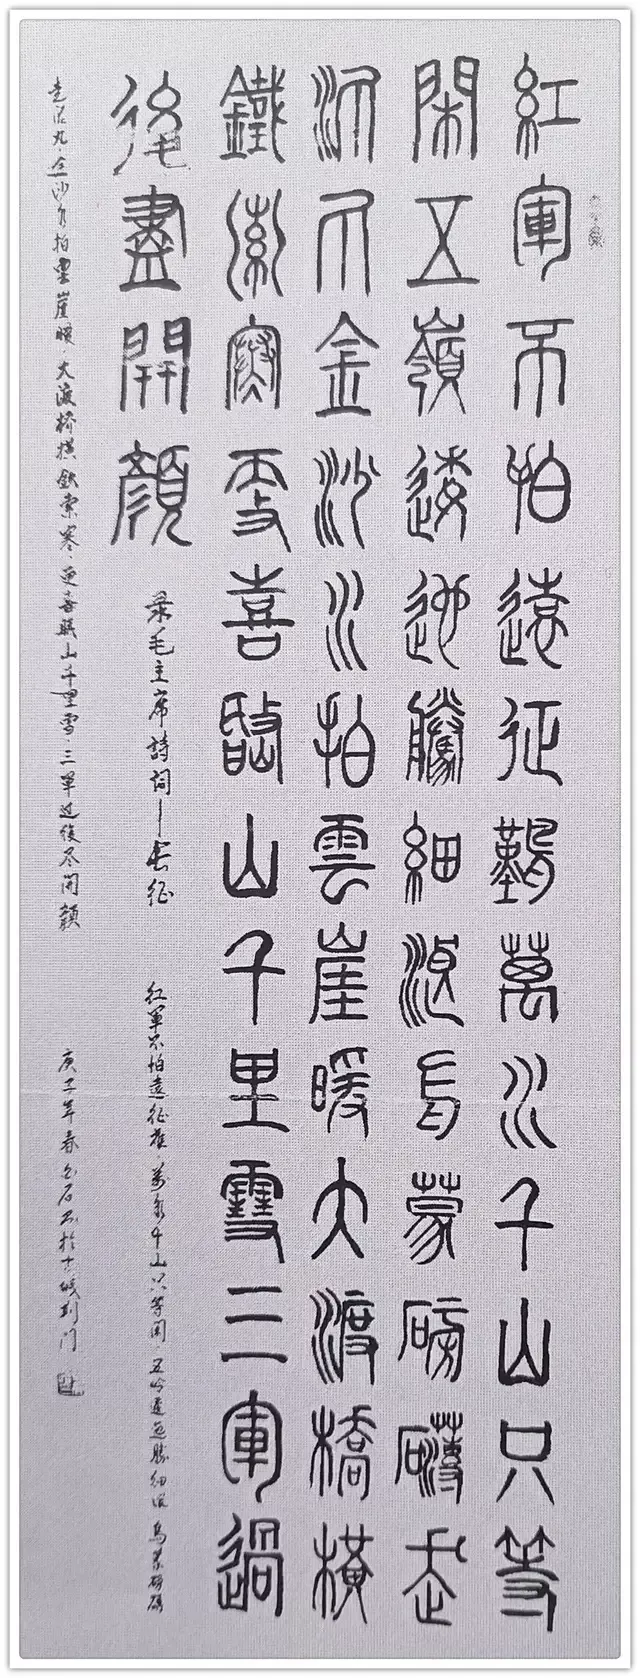 紅軍不怕遠征難萬水千山只等
閑五嶺逶迤騰細浪烏蒙磅礴走
泥丸金沙水拍雲崖暖大渡橋橫
鐵索寒更喜岷山千里雪三軍過
後盡開顏
录毛主席詩詞一長征
红軍不怕遠征难．萬水千山只等闲．五岭逶迤腾细浪．烏蒙磅礴
走泥丸．金沙水拍雲崖暖．大渡桥横铁索寒．更喜岷山千里雪．三軍过後尽開颜
庚子年春 荆门